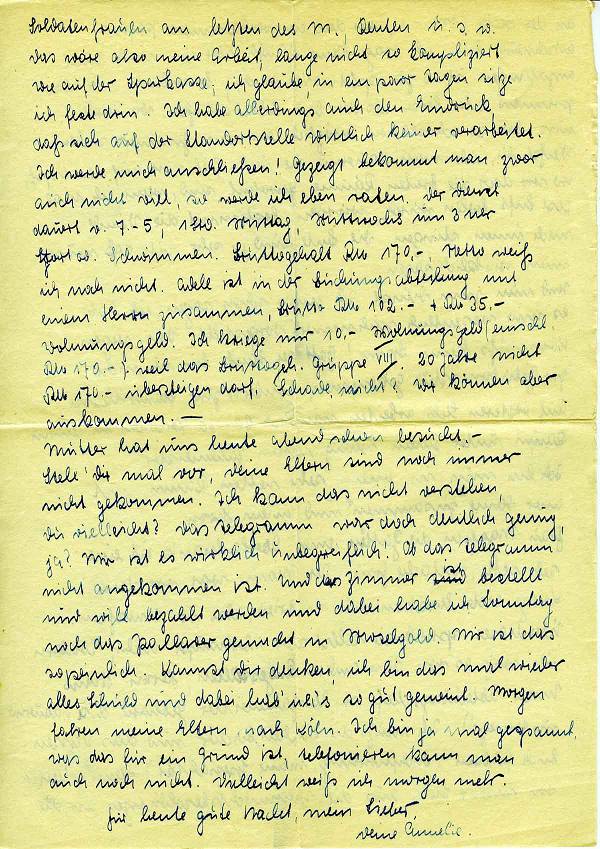 Soldatenfrauen am letzten des M., Renten u. s. w.
das wäre also meine Arbeit, lange nicht so kompliziert
wie auf der Sparkasse, ich glaube in ein paar Tagen sitze
ich feste drin. Ich habe allerdings auch den Eindruck
daß sich auf der Standortstelle Wittlich keiner verarbeitet.
Ich werde mich anschließen! Gezeigt bekommt man zwar
auch nicht viel, so werde ich eben raten. Der Dienst
dauert v. 7.-5, 1 Std. Mittag, Mittwochs um 3 Uhr
Sport od. Schwimmen. Bruttogehalt RM 170.-, Netto weiß
ich noch nicht. Adele ist in der Buchungsabteilung mit
einem Herrn zusammen, brutto RM 182.- + RM 35.-
Wohnungsgeld. Ich kriege nur 10.- Wohnungsgeld (einschl.
RM 170.-) weil das Bruttogeh. Gruppe VIII, 20 Jahre nicht
RM 170.- übersteigen darf. Schade, nicht? Wir können aber
auskommen. —
Mutter hat uns heute abend schon besucht. -
Stele' dir mal vor, deine Eltern sind noch immer
nicht gekommen. Ich kann das nicht verstehen,
du vielleicht? Das Telegramm war doch deutlich genug,
ja? Mir ist es wirklich unbegreiflich! Ob das Telegramm
nicht angekommen ist. Und das Zimmer ist bestellt
und will bezahlt werden und dabei habe ich Sonntag
noch das gemacht in Moselgold. Mir ist das
so peinlich. Kannst dir denken, ich bin das mal wieder
alles Schuld und dabei hab' ich's so gut gemeint. Morgen
fahren meine Eltern nach Köln. Ich bin ja mal gespannt,
was das für ein Grund ist, telefonieren kann man
auch noch nicht. Vielleicht weiß ich morgen mehr.
Für heute gute Nacht, mein Lieber,
deine Annelie.